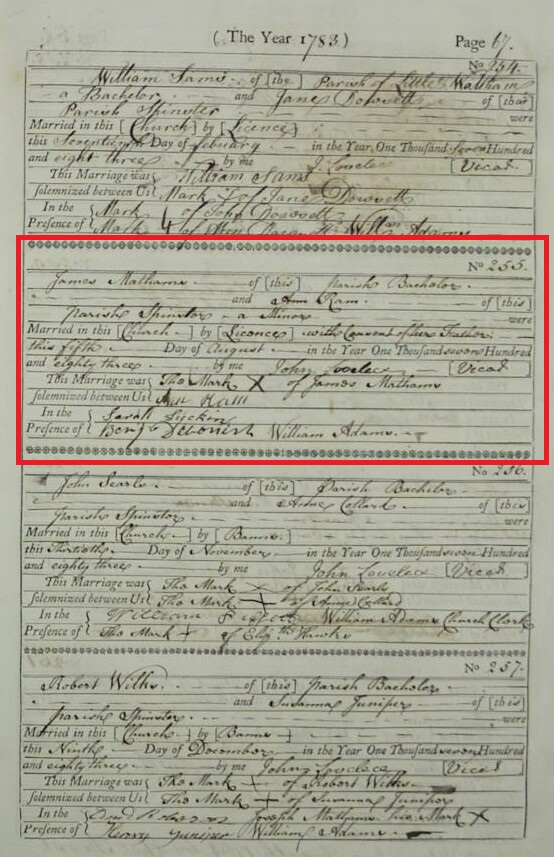 ( The Year 1783 ) Page 67.
No 254.
William Sams of [the] Parish of Little Waltham
a Bachelor and Jane Dowsett of [this]
Parish Spinster were
Married in this [Church] by [Licence]
this Seventeenth Day of February in the Year One Thousand seven Hundred
and eighty three by me J. Lovelee [Vicar]
This Marriage was William Sams
solemnized between Us Mark of Jane Dowsett
In the Mark of John Dowsett
Presence of Mark of Willm Adams
No 255.
James Mathams of [this] Parish Bachelor
and Ann Ram of [this]
Parish Spinster a Minor were
Married in this [Church] by [Licence] with Consent of her Father
this fifth Day of August in the Year One Thousand seven Hundred
and eighty three by me John Lovelee [Vicar]
This Marriage was The Mark X of James Mathams
solemnized between Us Ann Ram
In the Sarah Luckin
Presence of William Adams
No 256.
John Searls of [this] Parish Bachelor
and Anne Collard of [this]
Parish Spinster were
Married in this [Church] by [Banns]
this Thirtieth Day of November in the Year One Thousand seven Hundred
and eighty three by me John Lovelee [Vicar]
This Marriage was The Mark X of John Searls
solemnized between Us The Mark + of Anne Collard
In the William William Adams Church Clark
Presence of The Mark + of Elizth Hawks
No 257.
Robert Willis of [this] Parish Bachelor
and Susanna Juniper of [this]
Parish Spinster were
Married in this [Church] by [Banns]
this Ninth Day of December in the Year One Thousand seven Hundred
and eighty three by me John Lovelee [Vicar]
This Marriage was The Mark + of Robert Willis
solemnized between Us The Mark + of Susanna Juniper
In the Joseph Mathams his Mark X
Presence of Henry Juniper William Adams